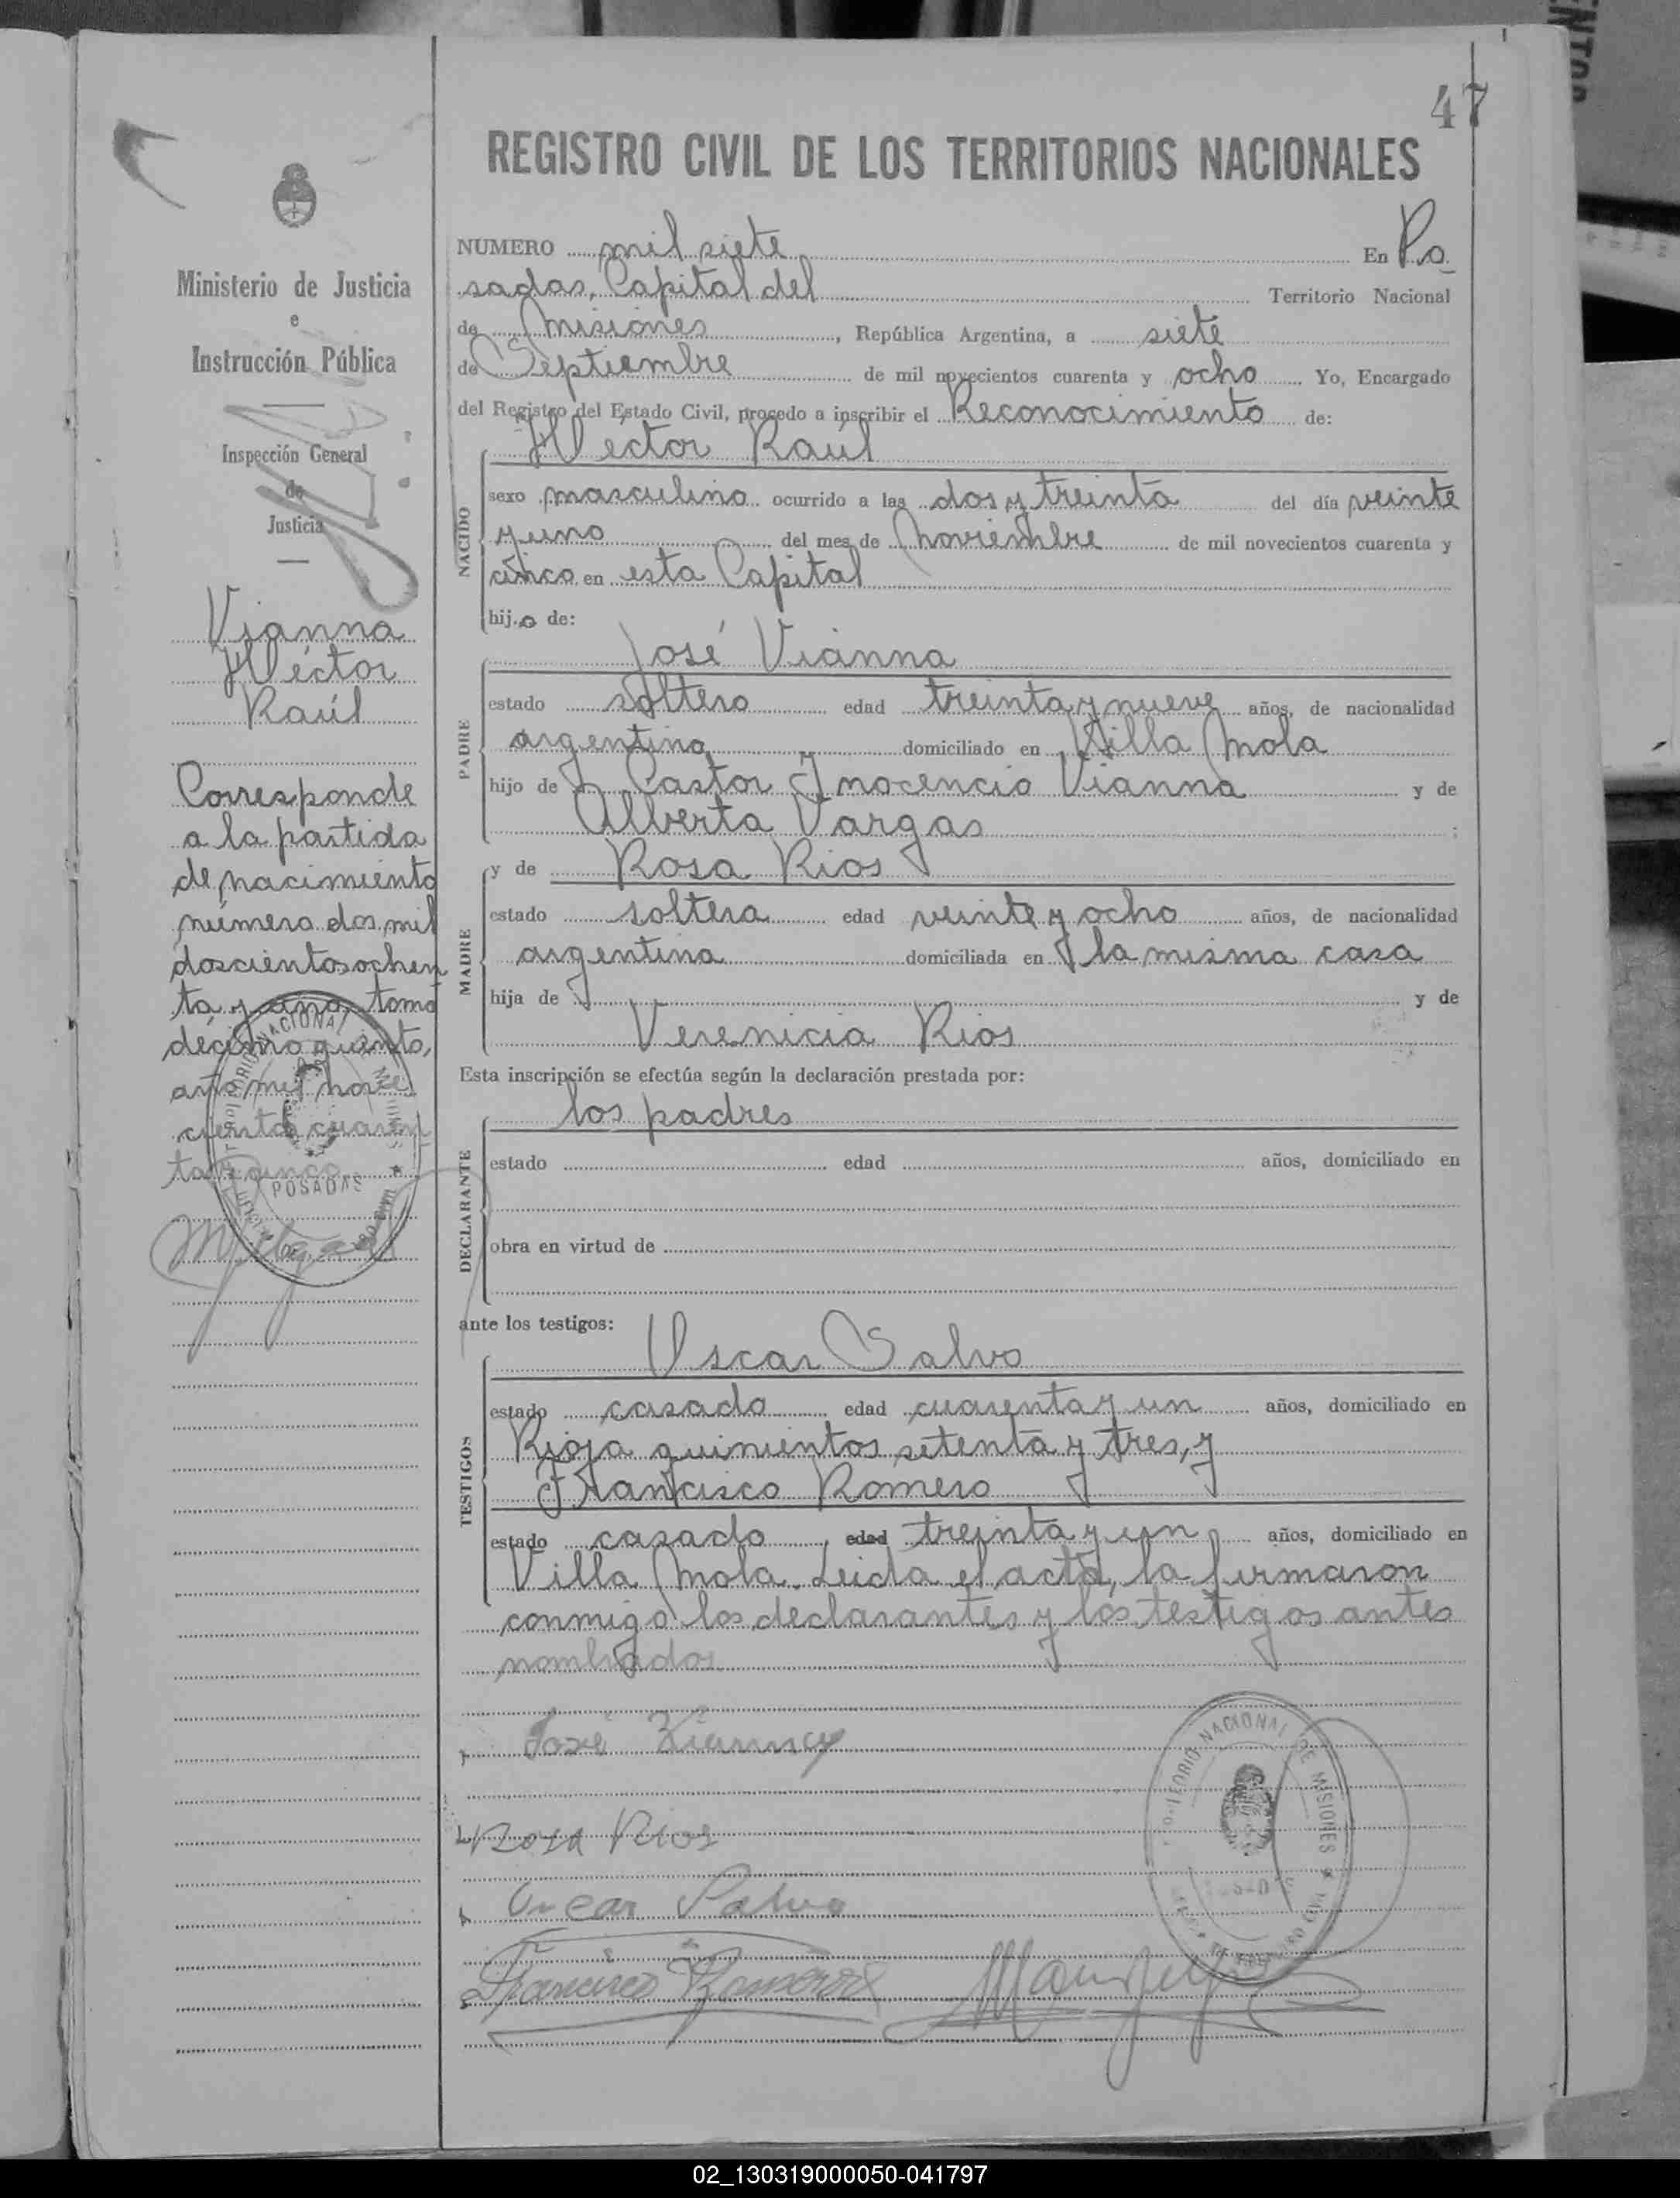 47
REGISTRO CIVIL DE LOS TERRITORIOS NACIONALES
Ministerio de Justicia
e
Instrucción Pública
Inspección General
de
Justicia
Vianna
Héctor
Raúl
Corresponde
a la partida
de nacimiento
número dos mil
doscientos ochen
ta y uno, tomo
décimo quinto,
año mil nove
cientos cuaren
ta y cinco
NUMERO mil siete En Po
sadas, Capital del Territorio Nacional
de Misiones, República Argentina, a siete
de Septiembre de mil novecientos cuarenta y ocho Yo, Encargado
del Registro del Estado Civil, procedo a inscribir el Reconocimiento de:
Hector Raúl
NACIDO
sexo masculino ocurrido a las dos y treinta del día veinte
y uno del mes de Noviembre de mil novecientos cuarenta y
cinco en esta Capital
hijo de:
José Vianna
PADRE
estado soltero edad treinta y nueve años, de nacionalidad
argentina domiciliado en Villa Mola
hijo de Castor Inocencio Vianna y de
Alberta Vargas ;
y de Rosa Rios
MADRE
estado soltera edad veinte y ocho años, de nacionalidad
argentina domiciliada en la misma casa
hija de y de
Verenicia Rios
Esta inscripción se efectúa según la declaración prestada por:
los padres
DECLARANTE
estado edad años, domiciliado en
obra en virtud de
ante los testigos:
Oscar Salvo
TESTIGOS
estado casado edad cuarenta y un años, domiciliado en
Rioja quinientos setenta y tres, y
Francisco Romero
estado casado edad treinta y un años, domiciliado en
Villa Mola. Leida el acta, la firmaron
conmigo los declarantes y los testigos antes
nombrados
José Vianna
Rosa Rios
Oscar Salvo
Francisco Romero
NACIONAL DE MISIONES
POSADAS
02_130319000050-041797